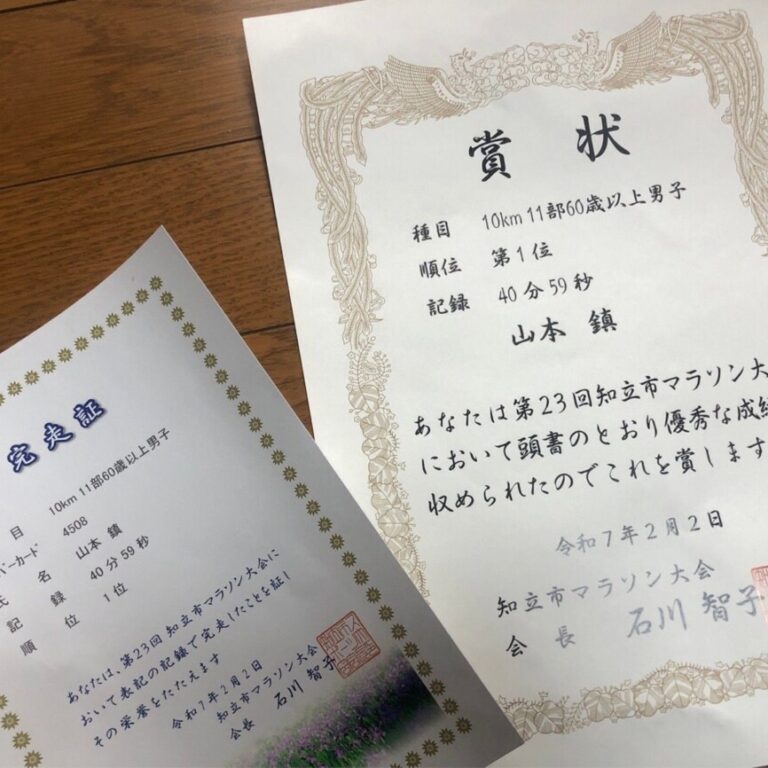 賞状
種目 10km 11部60歳以上男子
順位 第1位
記録 40分59秒
山本 鎮
あなたは第23回知立市マラソン大
において頭書のとおり優秀な成
収められたのでこれを賞します
令和7年2月2日
知立市マラソン大会
会長 石川 智子
完走証
目 10km 11部60歳以上男子
バーカード 4508
氏名 山本 鎮
記録 40分59秒
順位 1位
あなたは、第23回知立市マラソン大会に
おいて表記の記録で完走したことを証し
その栄誉をたたえます
令和7年2月2日
知立市マラソン大会
会長 石川 智子